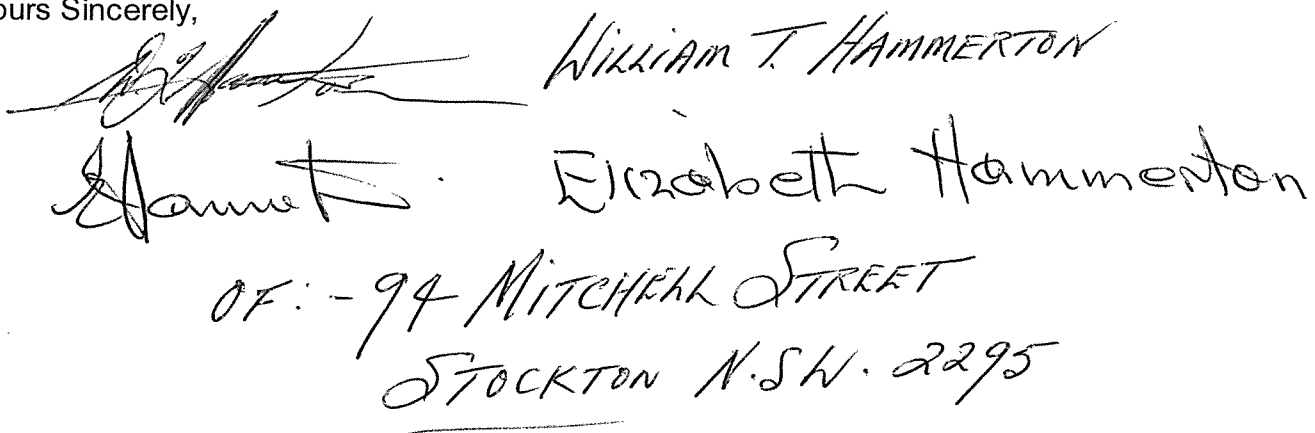 ours Sincerely,
WILLIAM T. HAMMERTON
Elizabeth Hammerton
OF:- 94 MITCHELL STREET
STOCKTON N.S.W. 2295